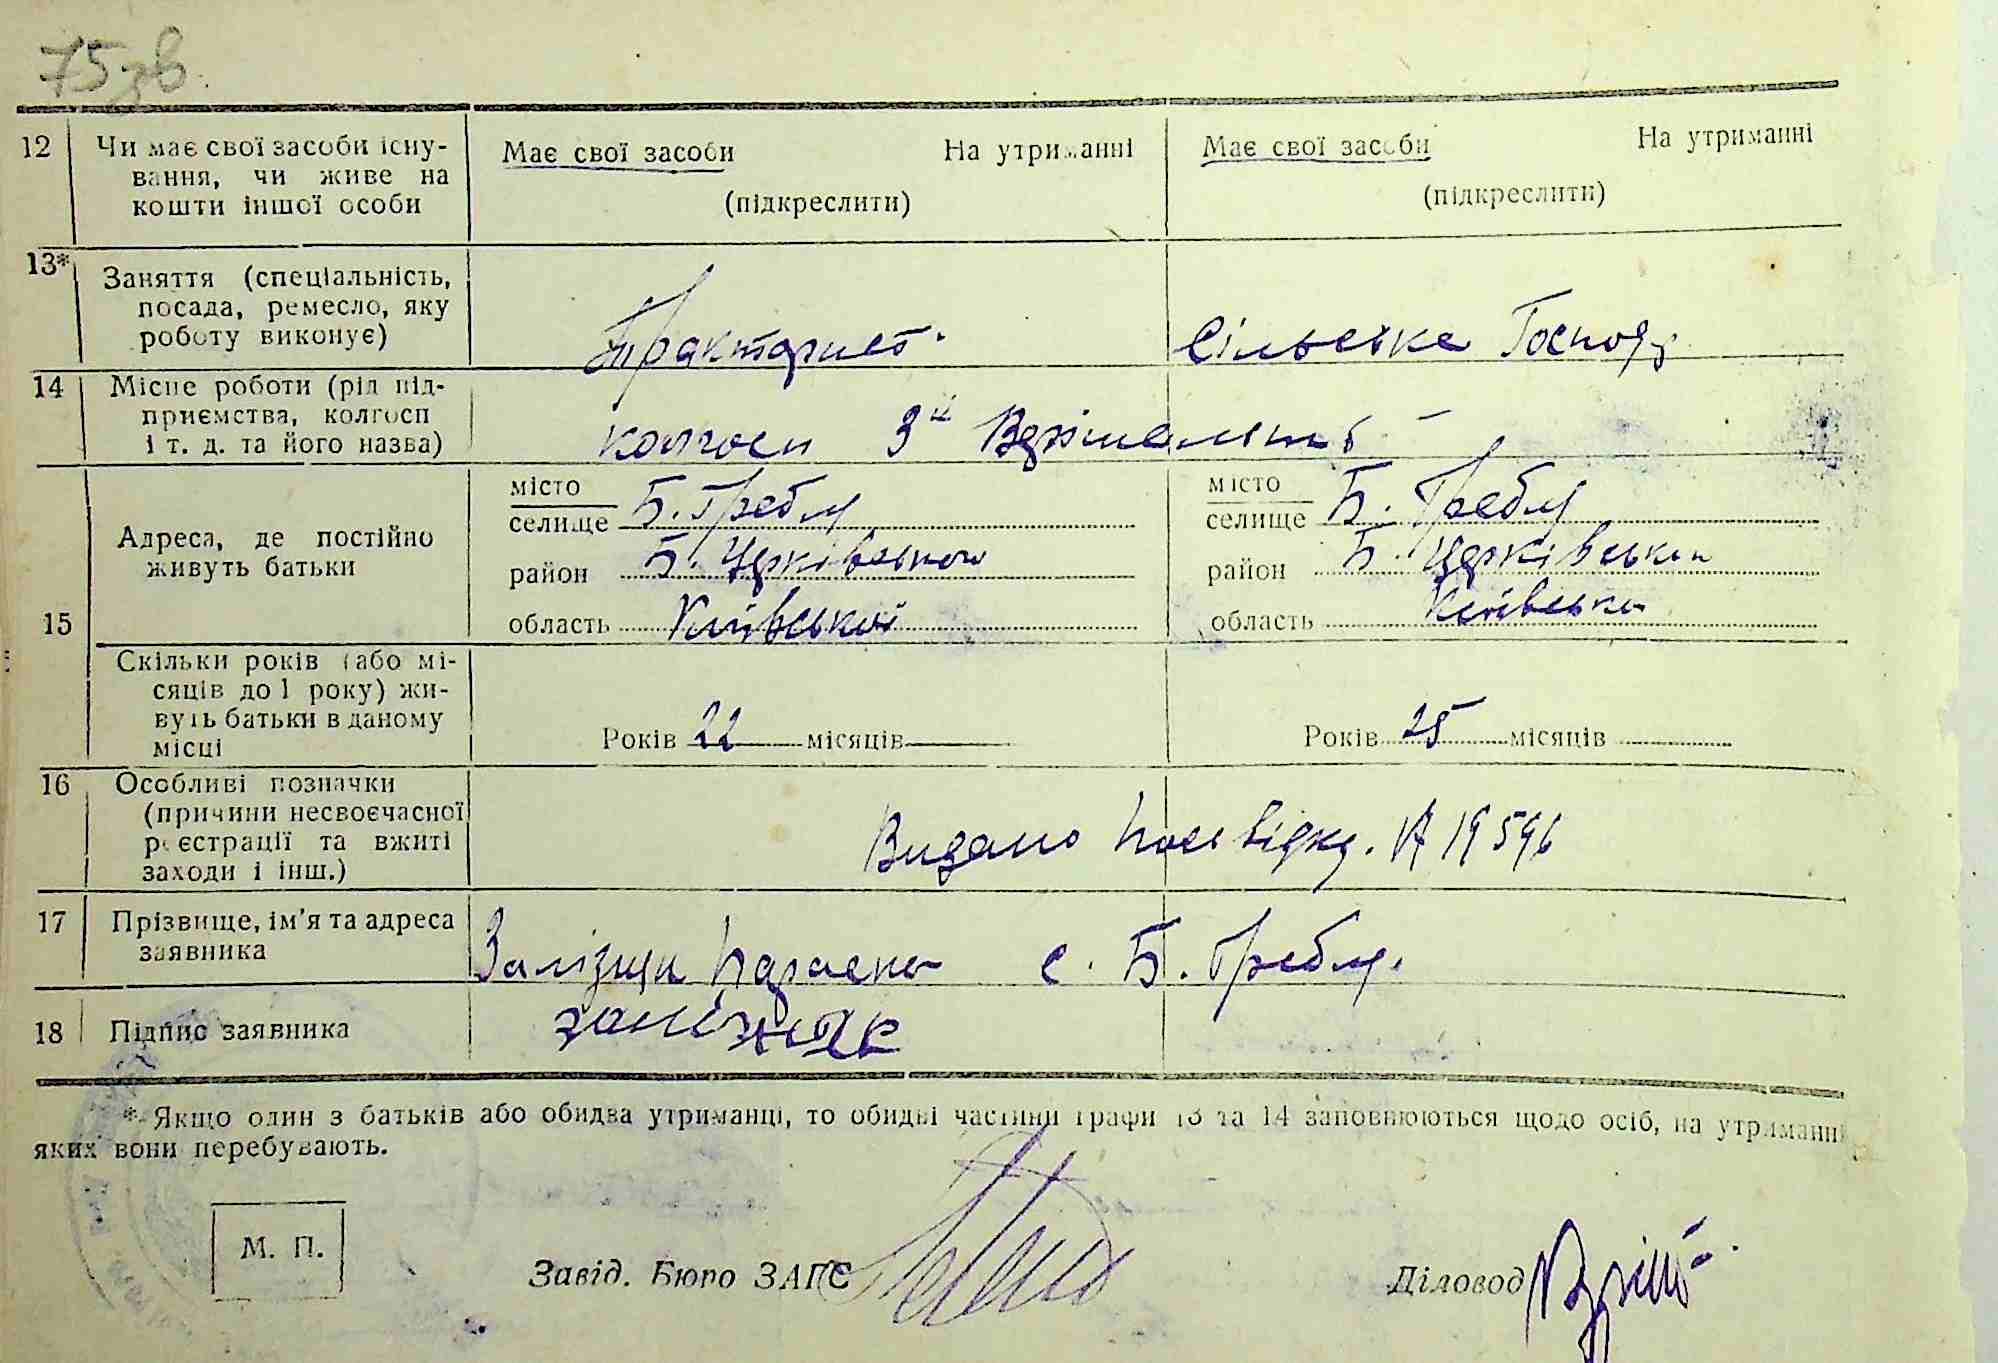 75зв.
12 Чи має свої засоби існу- Має свої засоби На утриманні Має свої засоби На утриманні
вання, чи живе на
кошти іншої особи (підкреслити) (підкреслити)
13* Заняття (спеціальність,
посада, ремесло, яку
роботу виконує) Тракторист. Сільське Господ
14 Місце роботи (рід під-
приємства, колгосп
і т. д. та його назва) колгосп 3й Вирішальний
15 Адреса, де постійно
живуть батьки
місто Б. Гребля місто Б. Гребля
селище селище
район Б. Церківського район Б. Церківськой
область Київськой область Київська
Скільки років (або мі-
сяців до 1 року) жи-
вуть батьки в даному
місці Років 22 місяців Років 25 місяців
16 Особливі позначки
(причини несвоєчасної
реєстрації та вжиті
заходи і інш.) Видано посвідку. № 19596
17 Прізвище, ім'я та адреса
заявника с. Б. Гребля.
18 Підпис заявника Залізняк
* Якщо один з батьків або обидва утриманці, то обидві частини графи 13 та 14 заповнюються щодо осіб, на утриманні
яких вони перебувають.
М. П.
Завід. Бюро ЗАГС Діловод